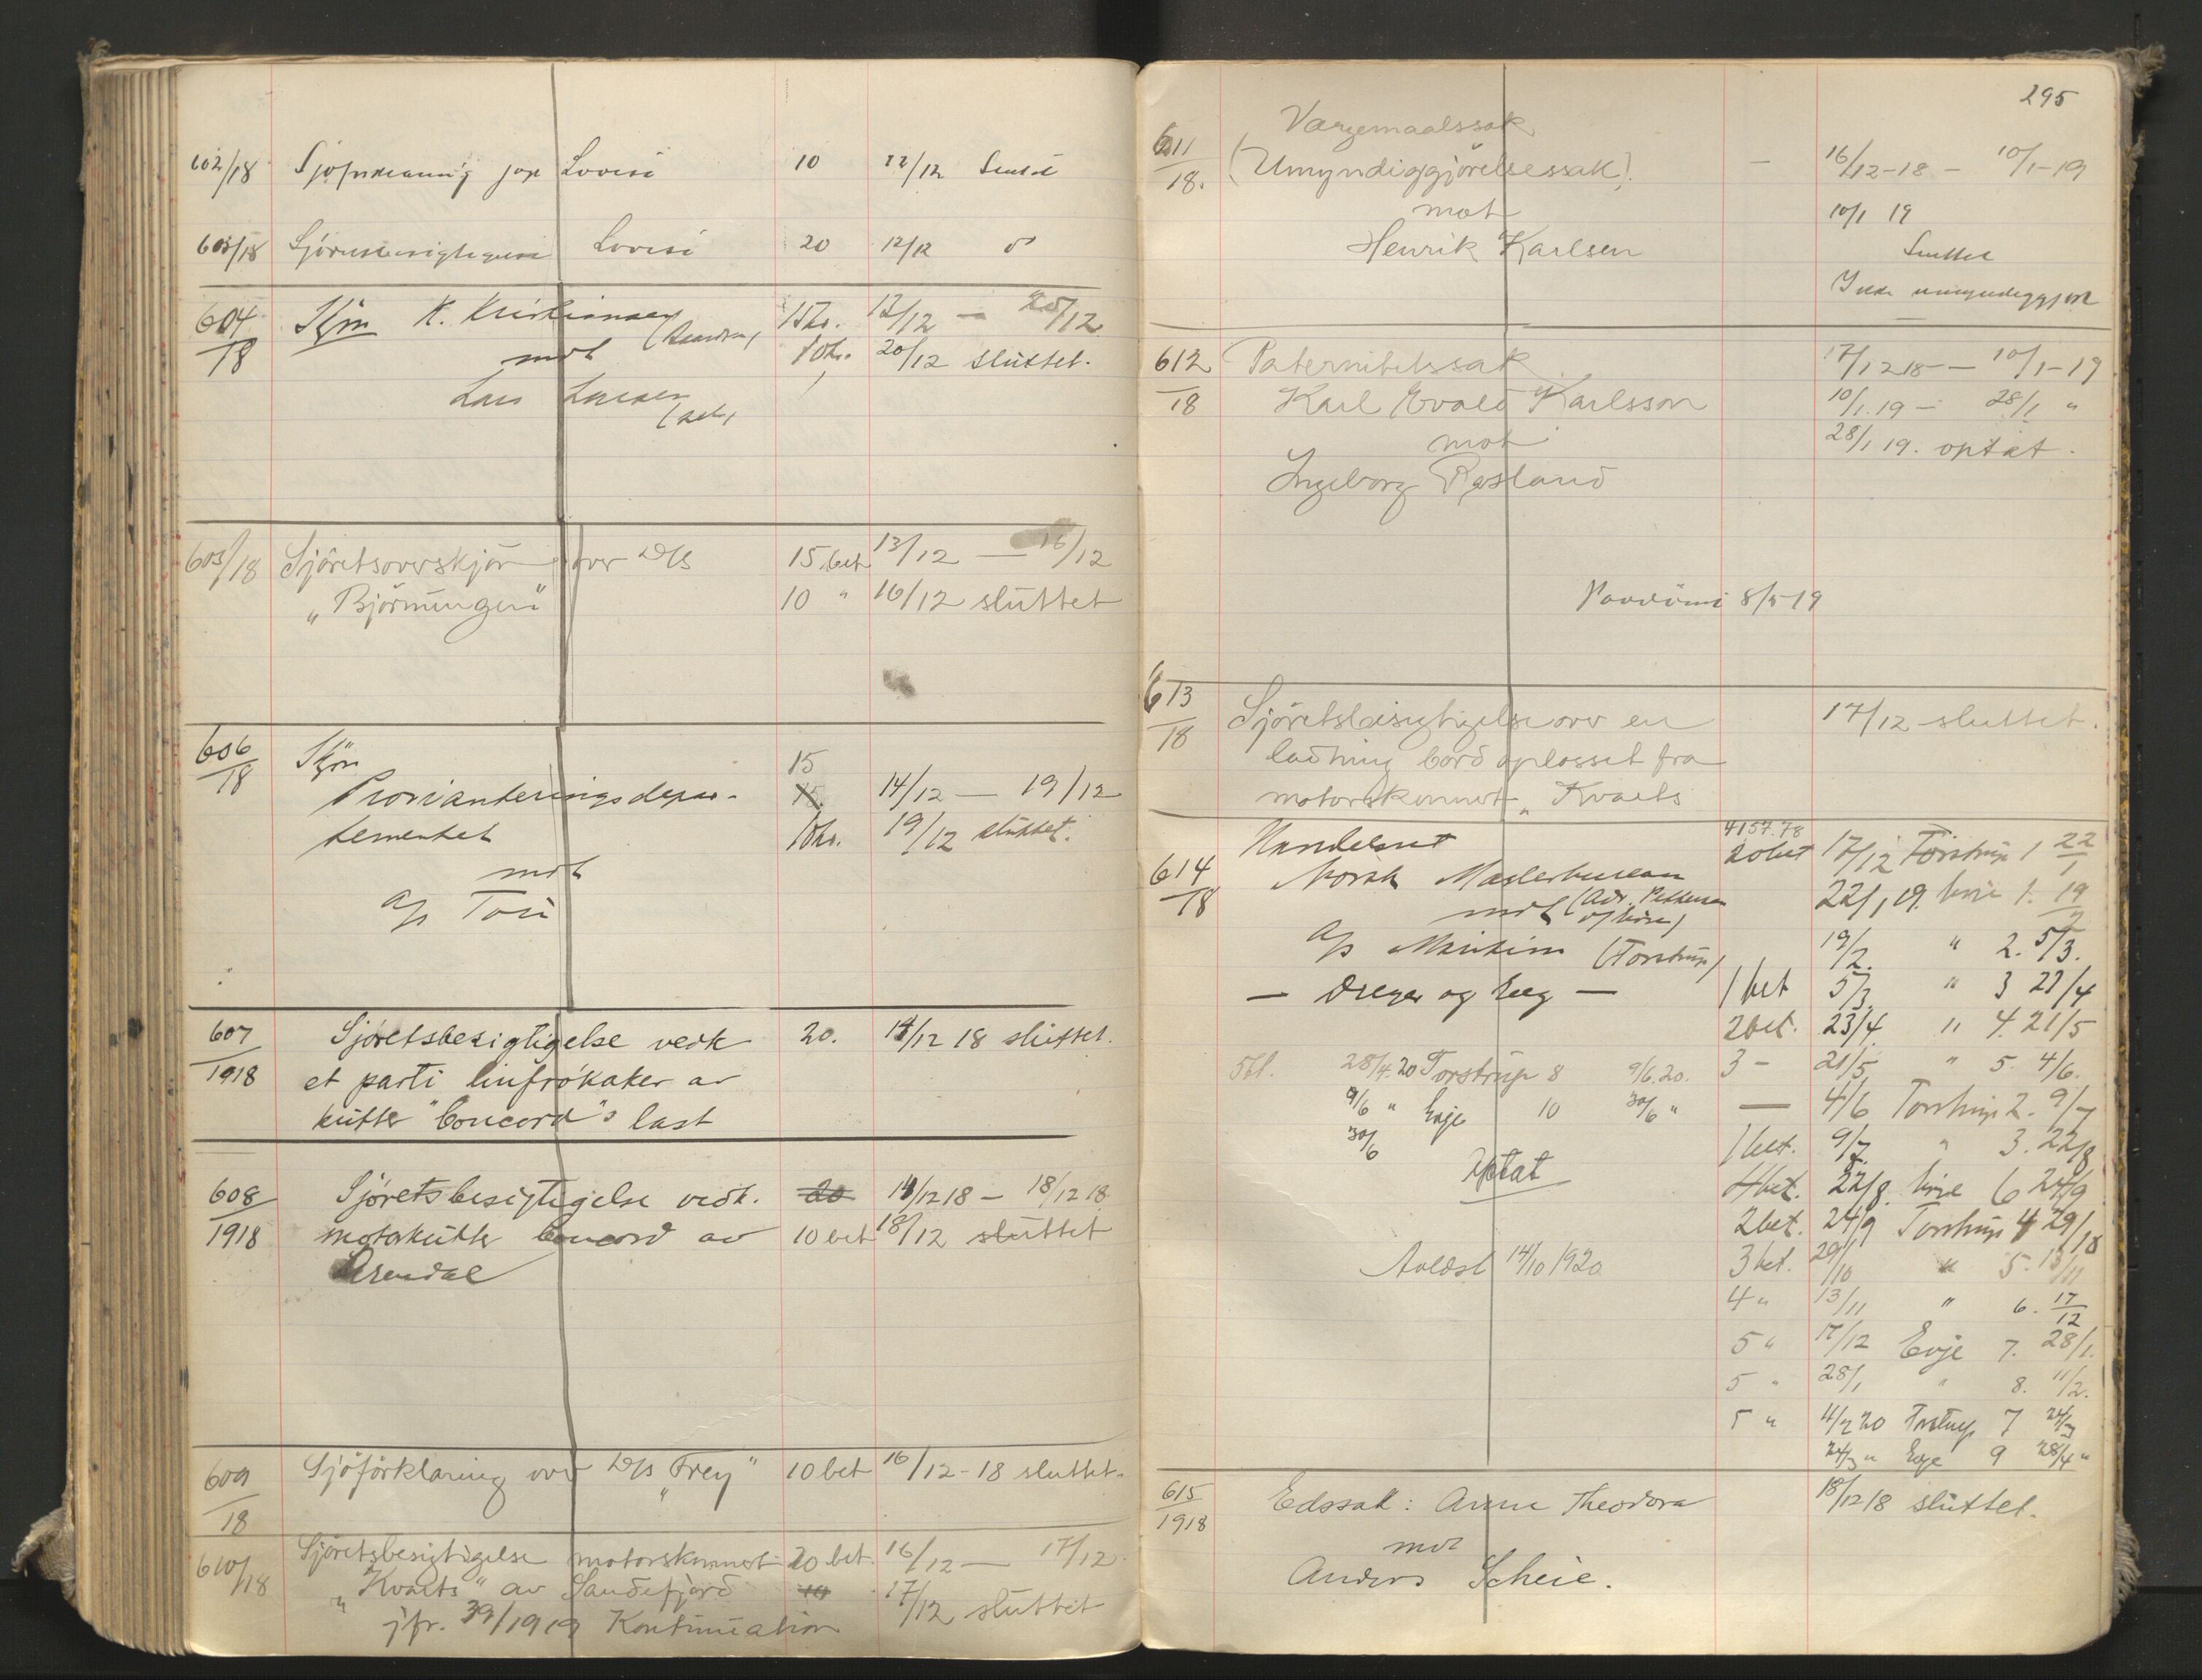 602/18 Sjøforklaring for Lovise 10 12/12 Sluttet
603/18 Sjöretsbesigtigelse Lovise 20 12/12 do
604/18 Skjøn K. Kristiansen 15kr. 12/12 — 20/12
mot 10kr. 20/12 sluttet.
Lars Larsen
605/18 Sjöretsoverskjön over D/S 15 bet 13/12 — 16/12
„Björnungen" 10 " 16/12 sluttet
606/18 Skjøn 15
Provianteringsdepar- 15. 14/12 — 19/12
tementet 10kr. 19/12 sluttet.
mot
A/S
607/1918 Sjøretsbesigtigelse vedk 20. 14/12 18 sluttet.
et parti linfrökaker av
kutter "Concord"s last
608/1918 Sjøretsbesigtigelse vedk. 20 14/12 18 – 18/12 18
motorkutter Concord av 10 bet 18/12 sluttet
Arendal
609/18 Sjöforklaring over D/S „Frey" 10 bet 16/12-18 sluttet.
610/18 Sjöretsbesigtigelse motorskonnert 20 bet. 16/12 — 17/12.
„Kvarts" av Sandefjord 10 17/12 sluttet
jfr. 39/1919 Kontinuation
295
Værgemaalssak
611/18. (Umyndiggjörelsessak). — 16/12-18 – 10/1-19
mot 10/1 19
Henrik Karlsen Sluttet
Ikke umyndiggjort
612/18 Paternitetssak 17/12 18 — 10/1-19
Karl Evald Karlsson 10/1.19 – 28/1 "
mot 28/1 19. optat.
Ingeborg Røsland
Paadömt 8/5 19
613/18 Sjöretsbesigtigelse over en 17/12 sluttet.
ladning bord oplosset fra
motorskonnert „Kvarts
614/18 Handelsret 4157.78 20 bet 17/12 Torstrup 1 22/1
Norsk Mæglerbureau 22/1 19. 1. 19/2
mot (Adv. Pettersen
A/S Maritim (Torstrup) 19/2. " 2. 5/3.
— Dreyer og — 1 bet 5/3. " 3 23/4
2 bet. 23/4 " 4. 21/5
3 – 21/5 " 5. 4/6.
28/4.20 Torstrup 8 9/6.20.
— 4/6 Torstrup 2. 9/7
9/6 " Evje 10 30/6 "
30/6 1 bet. 9/7. " 3. 22/8
Optat 4 bet. 22/8. 6 24/9
2 bet. 24/9 Torstrup 4 29/10
Avlæst 14/10 1920 3 bet. 29/10 " 5. 13/11
4 " 13/11 " 6. 17/12
5 " 17/12 Evje 7. 28/1.
5 " 28/1 " 8. 11/2.
5 " 11/2 20 Torstrup 7 24/3
24/3 " Evje 9 28/4 "
615/1918 Edssak: Anne Theodora 18/12 18 sluttet.
mot
Anders Scheie.